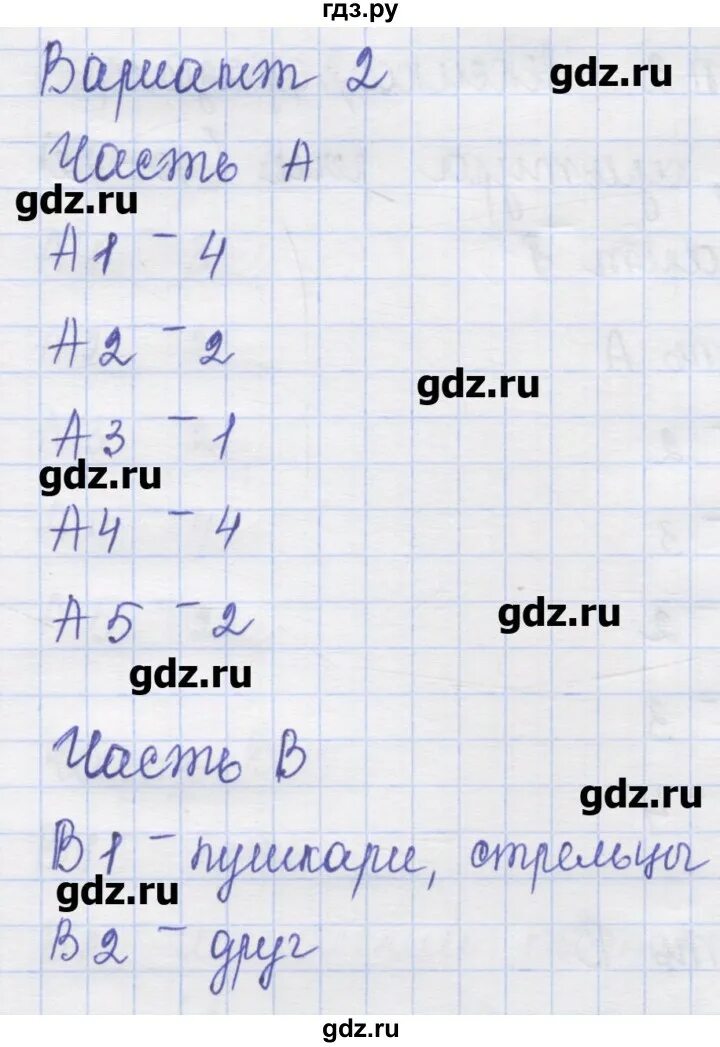 гдз.ру
Вариант 2
gdz.ru
Часть А
gdz.ru
А1 - 4
А2 - 2
gdz.ru
А3 - 1
gdz.ru
А4 - 4
А5 - 2
gdz.ru
gdz.ru
Часть В
gdz.ru
В1 - пушкари, стрельцы
gdz.ru
В2 - друг
gdz.ru